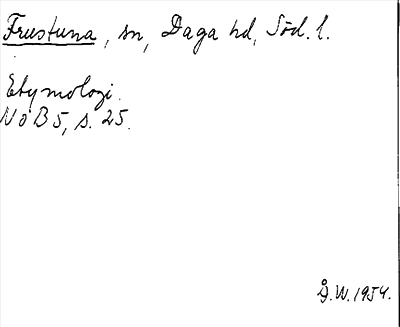 Frustuna, sn, Daga hd, Söd. l.
Etymologi.
NoB 5, s. 25.
Å.W. 1954.